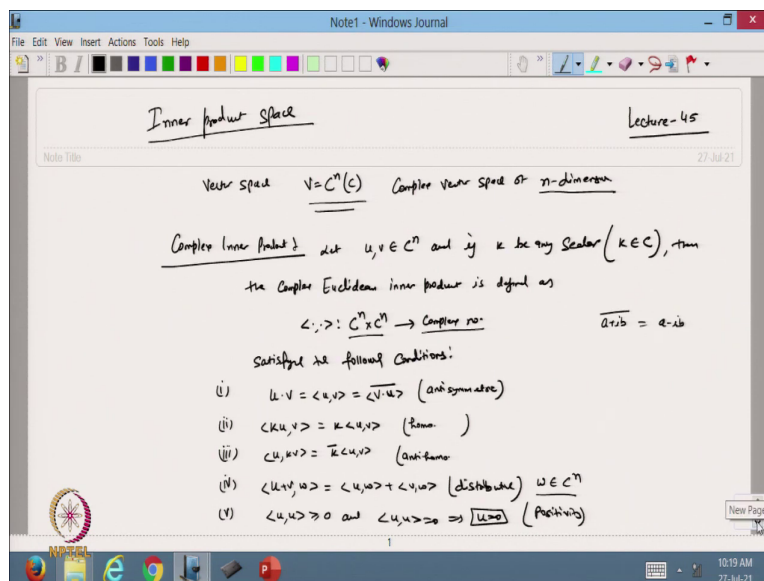 Note1 - Windows Journal
File Edit View Insert Actions Tools Help
Inner product space
Lecture-45
Note Title
27-Jul-21
Vector space V=C^n(C) Complex vector space of n-dimension
Complex Inner Product: Let u,v ∈ C^n and if k be any Scalar (k ∈ C), then
the Complex Euclidean inner product is defined as
<·,·>: C^n×C^n → Complex no.
\overline{a+ib} = a-ib
satisfied the following Conditions:
(i) u·v = <u,v> = \overline{<v·u>} (antisymmetre)
(ii) <ku,v> = k<u,v> (homo. )
(iii) <u,kv> = \overline{k}<u,v> (antihomo
(iv) <u+v,w> = <u,w> + <v,w> (distributive) w ∈ C^n
(v) <u,u> ≥ 0 and <u,u> = 0 => u=0 (Positivity)
New Page
1
NPTEL
10:19 AM
27-Jul-21